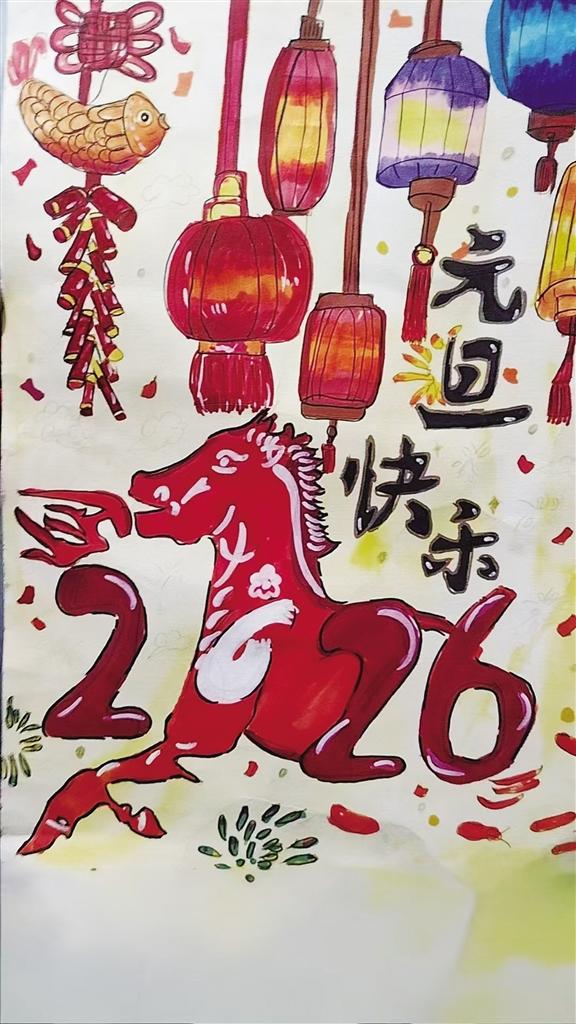 元旦
快乐
2026